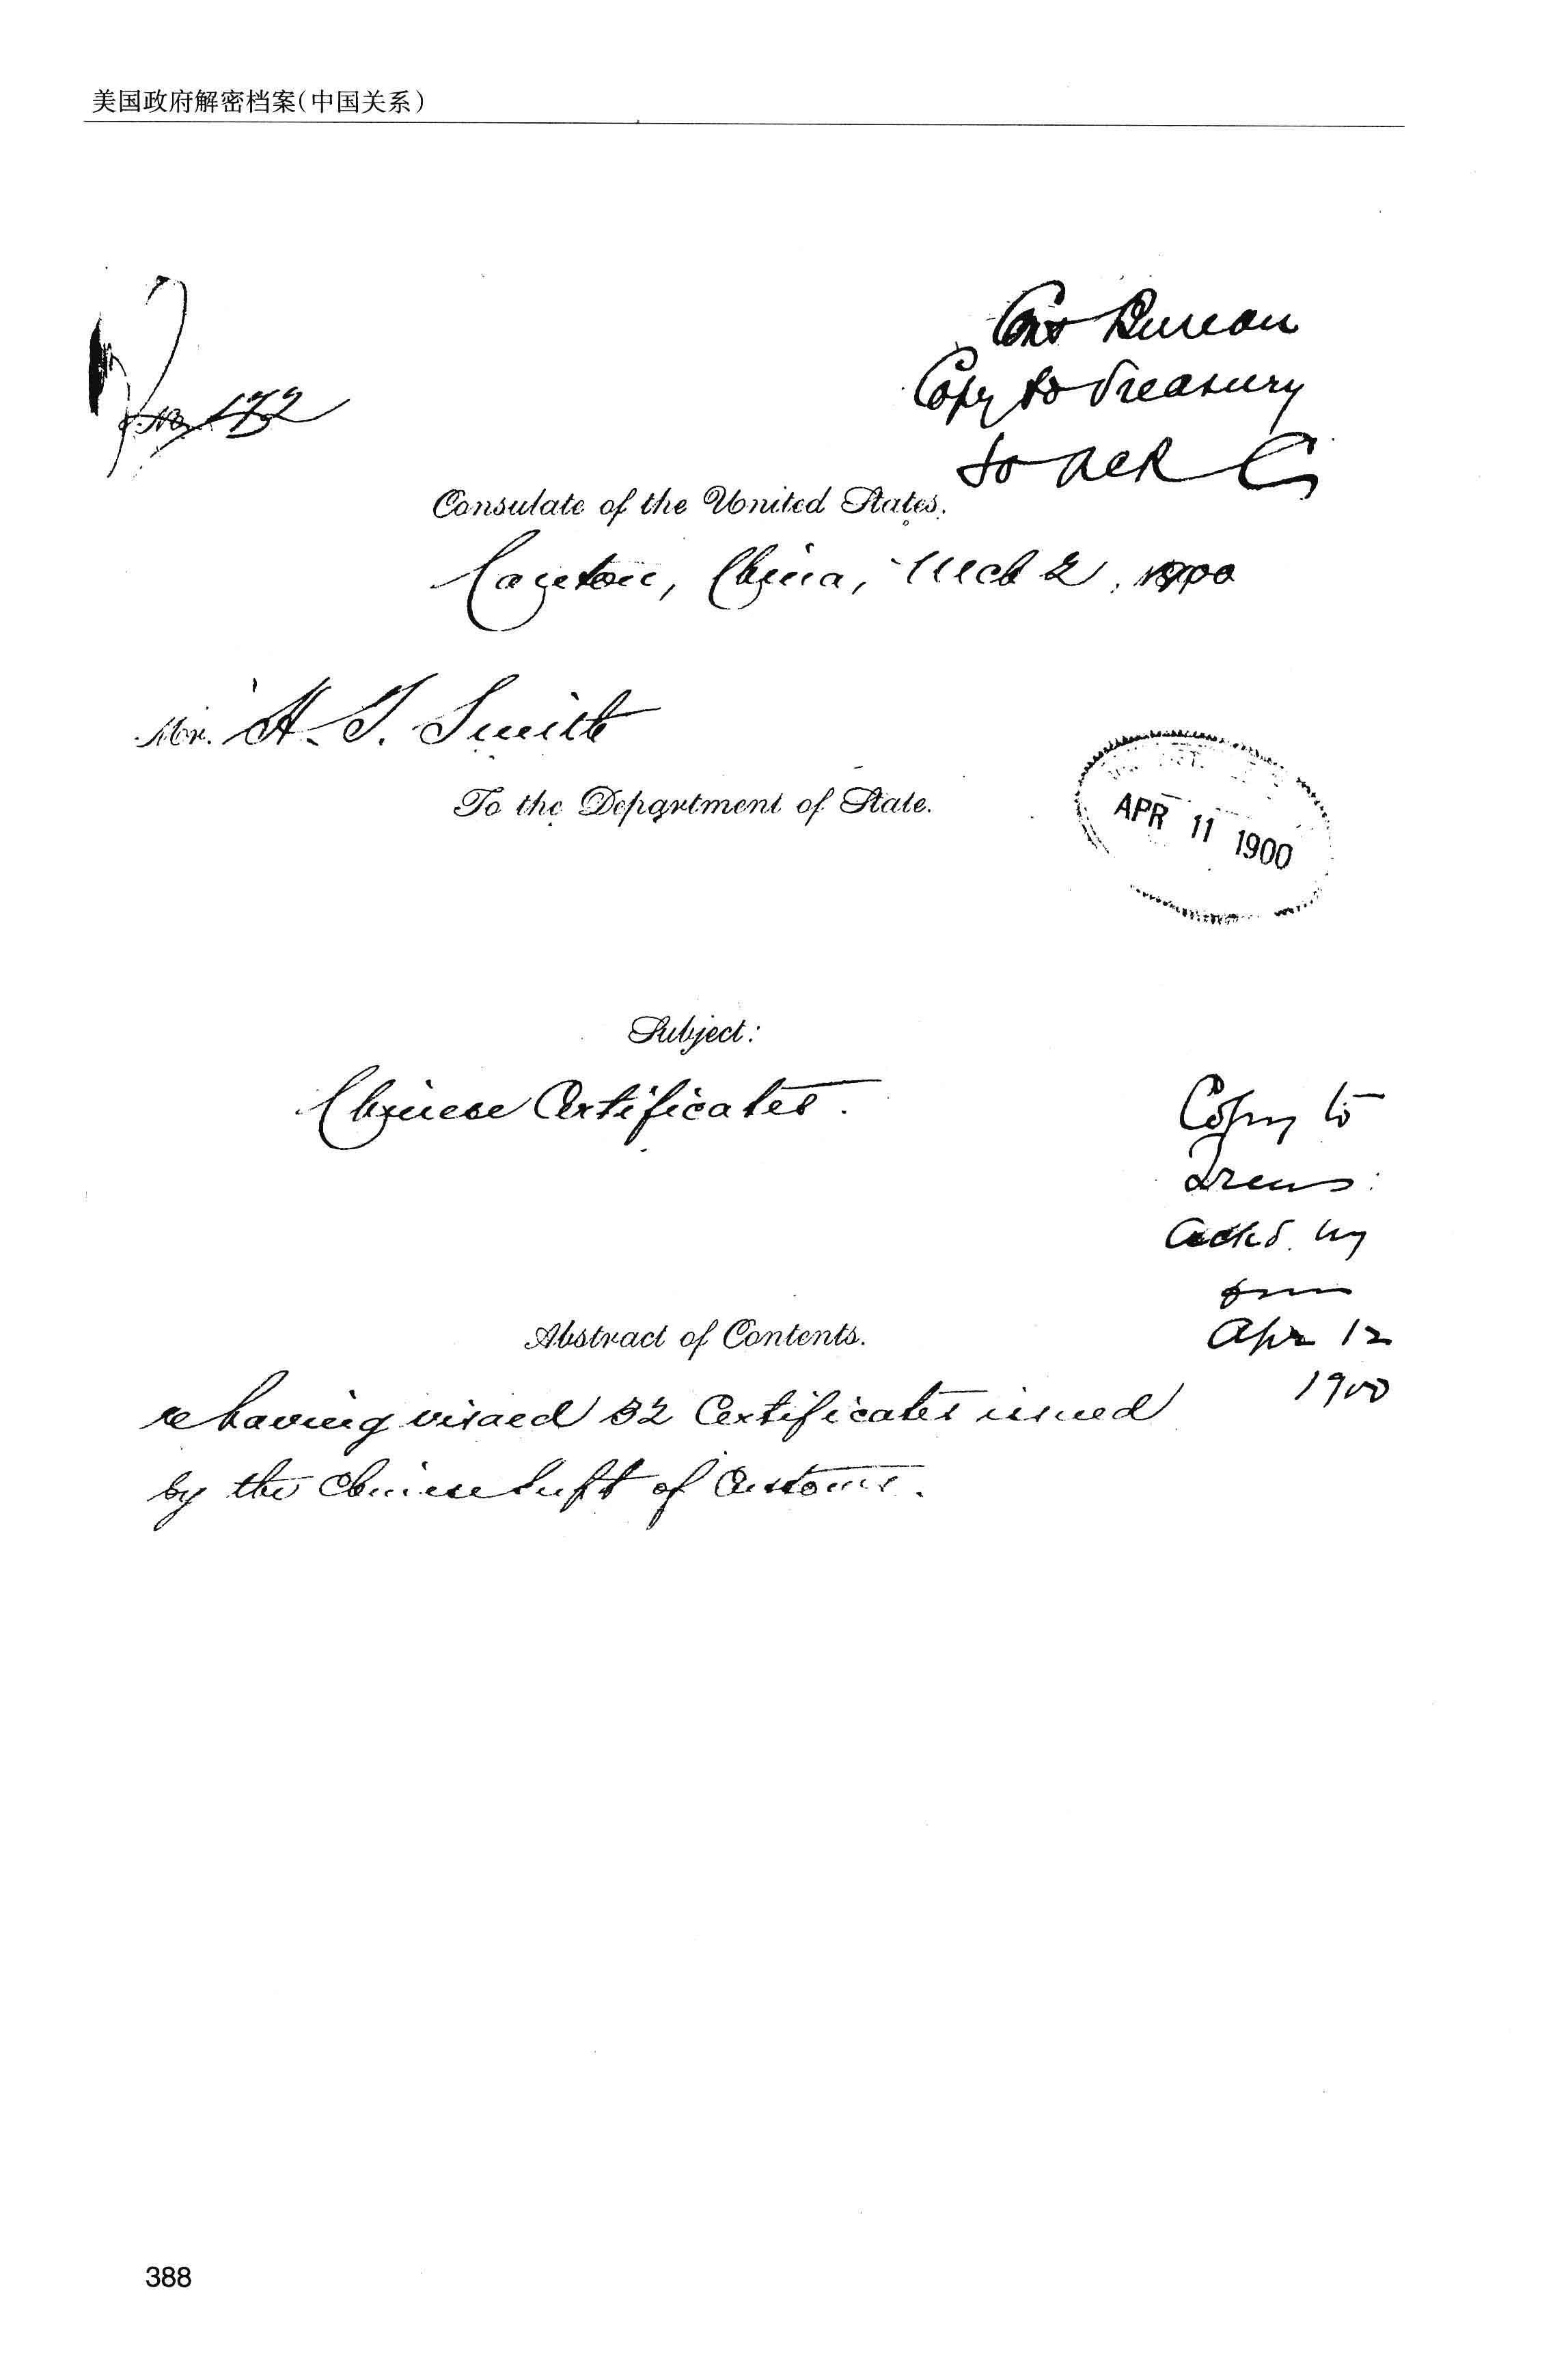 美国政府解密档案(中国关系)
Bureau
Copy to Treasury
No. 132
to
Consulate of the United States.
Canton, China, Mch 2, 1900
Mr. H. F. Smith
To the Department of State.
APR 11 1900
Subject:
Chinese Certificates.
Copy to
Treas:
Ackd. by
Abstract of Contents.
Apr 12
1900
re having visaed 32 Certificates issued
by the Chinese Supt of Customs.
388